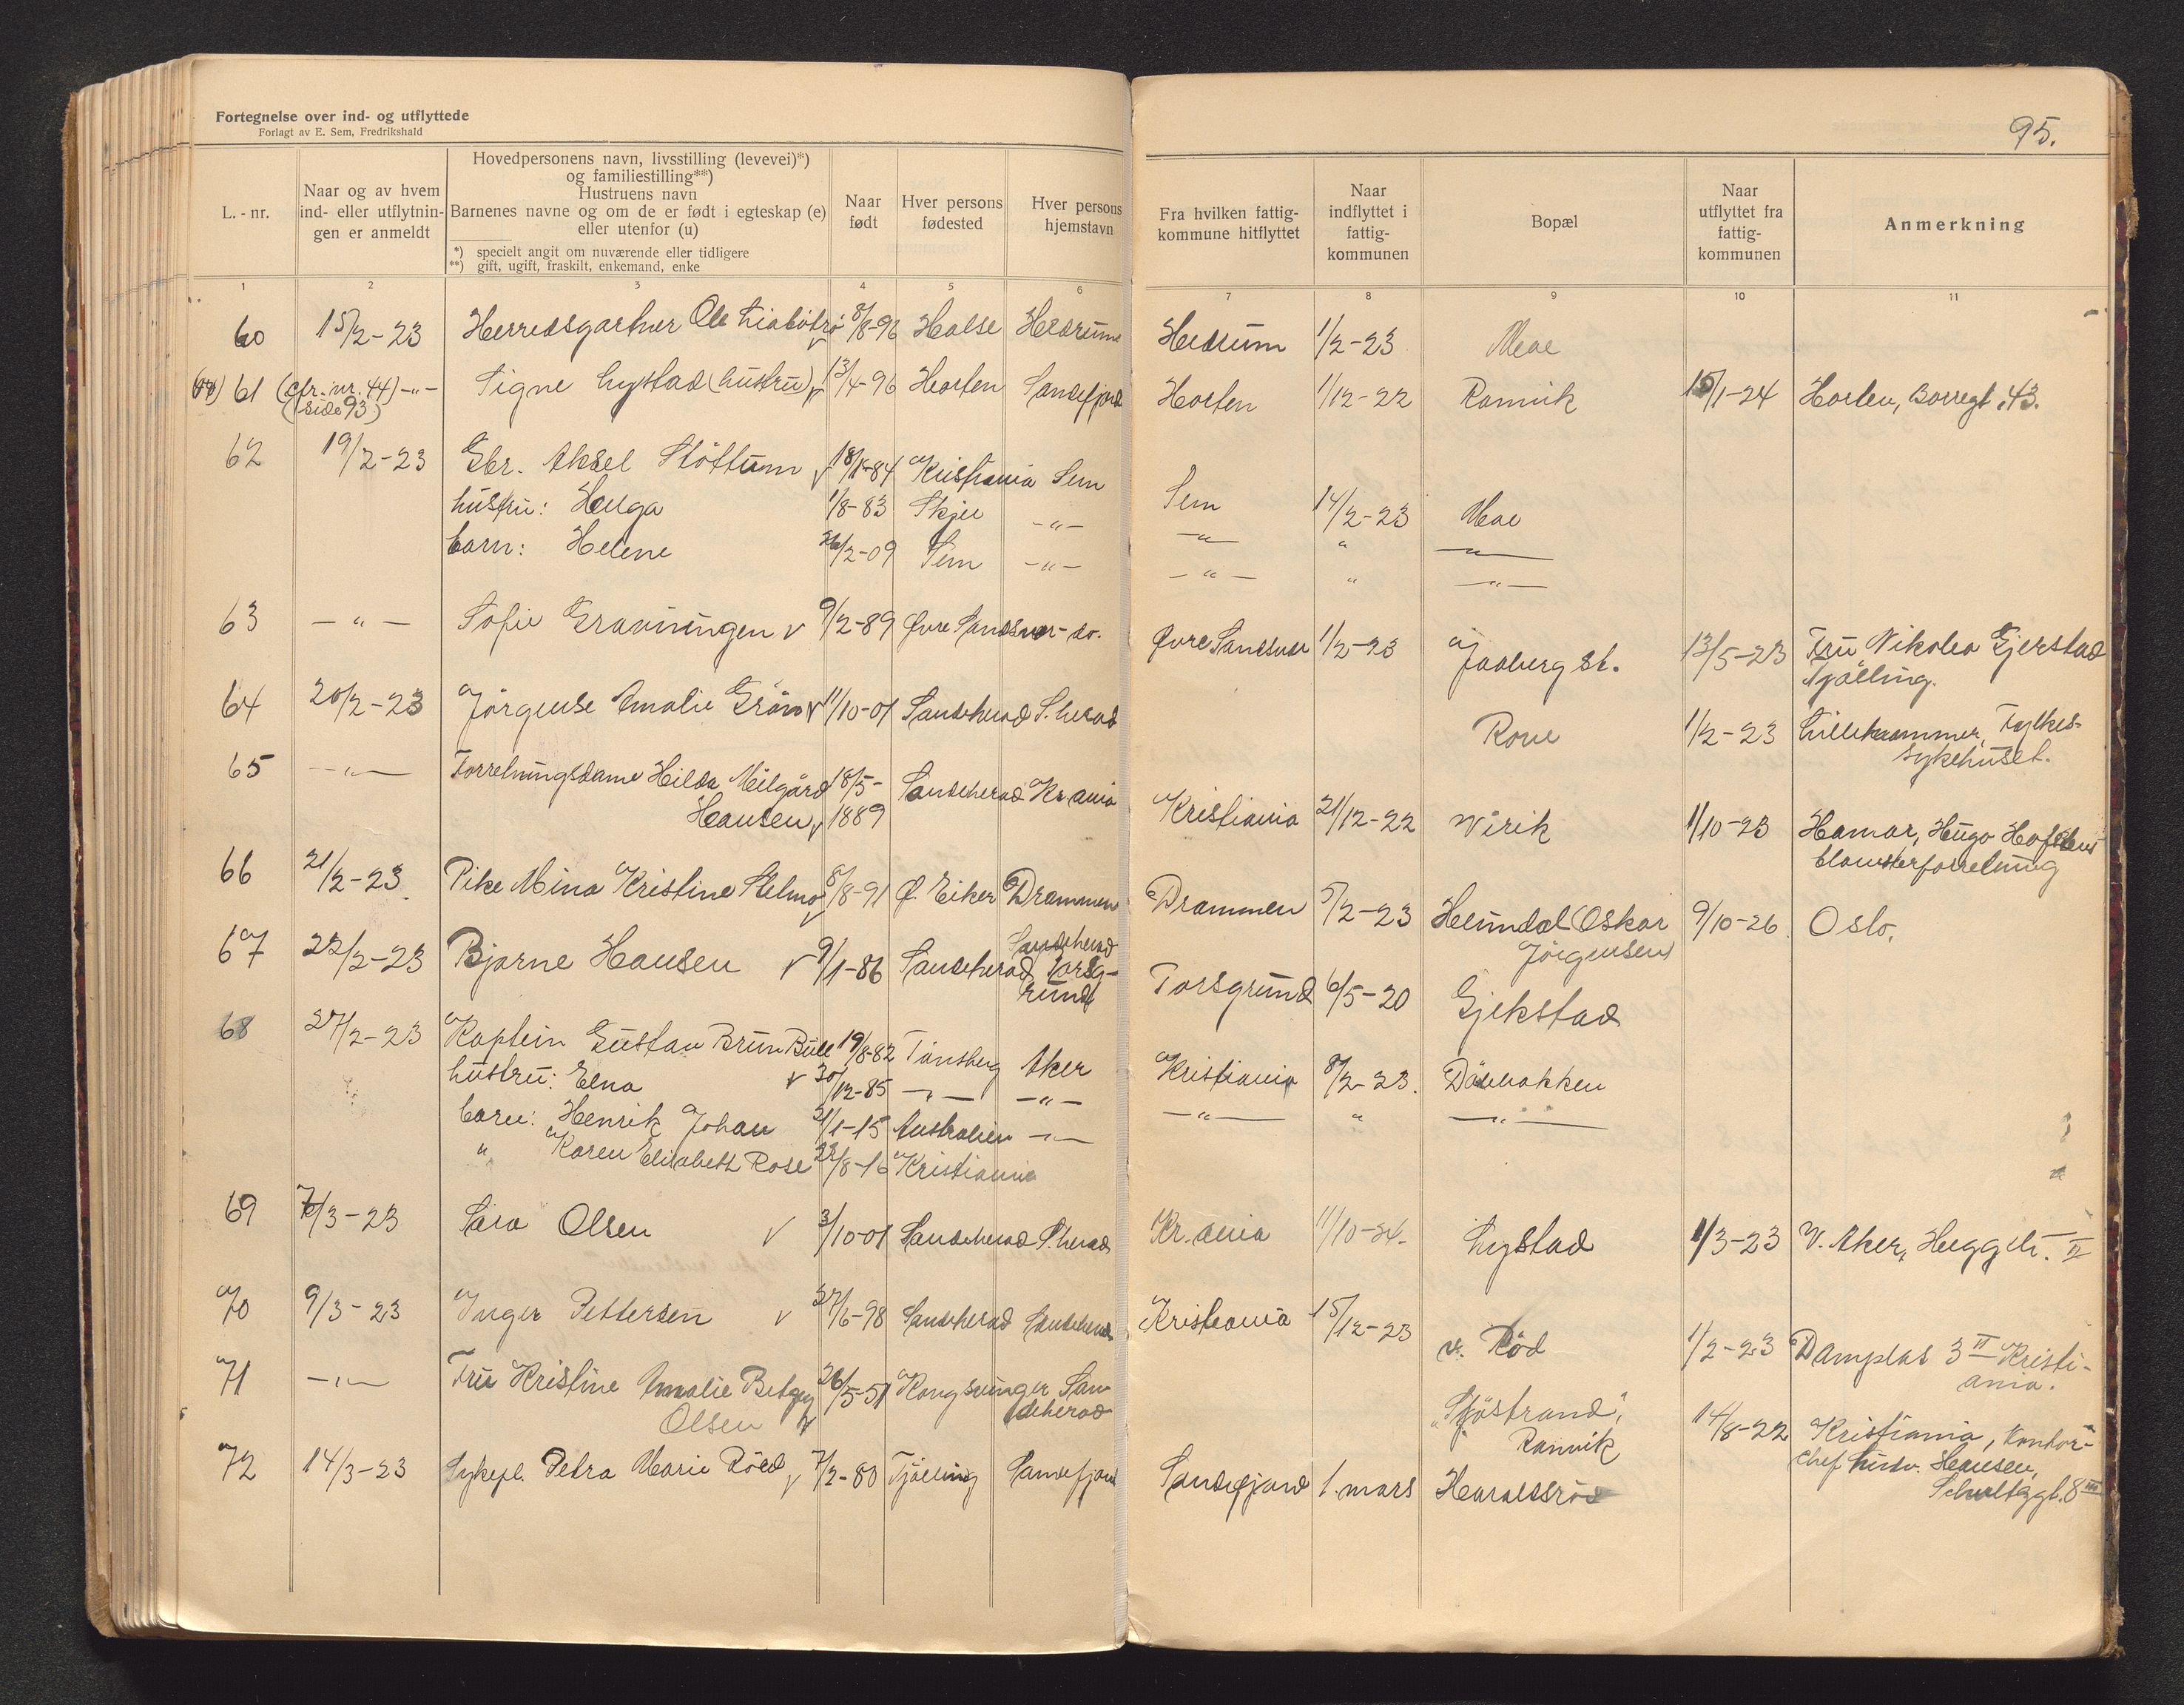 Fortegnelse over ind- og utflyttede
Forlagt av E. Sem, Fredrikshald
95.
L. - nr.
Naar og av hvem
ind- eller utflytnin-
gen er anmeldt
Hovedpersonens navn, livsstilling (levevei)*)
og familiestilling**)
Hustruens navn
Barnenes navne og om de er født i egteskap (e)
eller utenfor (u)
*) specielt angit om nuværende eller tidligere
**) gift, ugift, fraskilt, enkemand, enke
Naar
født
Hver persons
fødested
Hver persons
hjemstavn
Fra hvilken fattig-
kommune hitflyttet
Naar
indflyttet i
fattig-
kommunen
Bopæl
Naar
utflyttet fra
fattig-
kommunen
Anmerkning
1 2 3 4 5 6 7 8 9 10 11
60 15/2-23 Herredsgartner Ole 8/8-96 Halse Hedrum Hedrum 1/2-23 Moe
61 (cfr. nr. 44) -"- Signe Lystad (hustru) v 13/4-96 Horten Sandefjord Horten 1/12-22 Ranvik 15/1-24 Horten, Borregt. 43.
(side 93)
62 19/2-23 Gbr. Aksel Støttum v 18/1-84 Kristiania Sem Sem 14/2-23 Moe
hustru: Helga 1/8-83 Skjee -"- -"- " -"-
barn: Helene 26/2-09 Sem -"- -"- " -"-
63 -"- Sofie Gravningen v 9/2-89 Øvre Sandsvær - do. Øvre Sandsvær 1/2-23 Jaaberg st. 13/5-23 Fru Nikolea Gjerstad
Tjölling.
64 20/2-23 Jørgense Amalie Grøn v 11/10-01 Sandeherad S.herad Rove 1/2-23 Lillehammer, Fylkes-
sykehuset.
65 -"- Forretningsdame Hilda Milgård 18/5- Sandeherad Kr.ania Kristiania 21/12-22 Virik 1/10-23 Hamar, Hugo
Hansen v 1889 blomsterforretning
66 21/2-23. Pike Mina Kristine 8/8-91 Ø. Eiker Drammen Drammen 5/2-23 Heimdal (Oskar 9/10-26 Oslo.
Jørgensen)
67 22/2-23 Bjarne Hansen v 9/1-86 Sandeherad Sandeherad Porsg- Porsgrund 6/5-20 Gjekstad
rund
68 27/2-23 Kaptein Gustav Brun Bull 19/8-82 Tønsberg Aker Kristiania 8/2-23. Dølebakken
hustru: Elna v 30/12-85 -"- -"- -"- " -"-
barn: Henrik Johan 31/1-15 Australien -"-
" Karen Elisabeth Rose 22/8-16 Kristiania
69 7/3-23 Sara Olsen v 3/10-01 Sandeherad S.herad Kr.ania 11/10-24- Lystad 1/3-23 V. Aker, II
70 9/3-23 Inger Pettersen v 27/6-98 Sandeherad Sandeherad Kristiania 15/12-23 v. Rød 1/2-23 Damplas 3 II Kristi-
ania.
71 -"- Fru Kristine Amalie Betzy 26/5-51 Kongsvinger San- "Sjøstrand", 14/8-22 Kristiania, Kontor-
Olsen v deherad Ranvik chef Hansen,
72 14/3-23 Sykepl. Petra Marie Røed v 7/2-80 Tjølling Sandefjord Sandefjord 1. mars Haraldsrød Schultzgt. 8 III